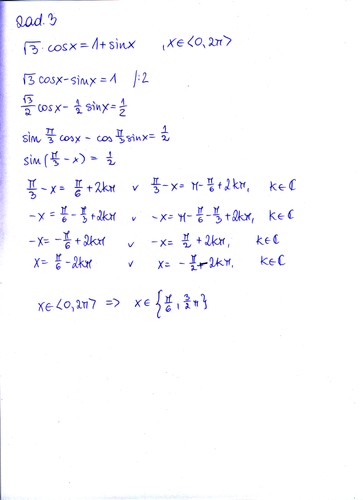 Zad. 3
√3 · cosx = 1 + sinx , x∈<0, 2π>
√3 cosx - sinx = 1 /:2
√3/2 cosx - 1/2 sinx = 1/2
sin π/3 cosx - cos π/3 sinx = 1/2
sin(π/3 - x) = 1/2
π/3 - x = π/6 + 2kπ ∨ π/3 - x = π - π/6 + 2kπ, k∈C
-x = π/6 - π/3 + 2kπ ∨ -x = π - π/6 - π/3 + 2kπ, k∈C
-x = -π/6 + 2kπ ∨ -x = π/2 + 2kπ, k∈C
x = π/6 - 2kπ ∨ x = -π/2 - 2kπ, k∈C
x∈<0, 2π> => x∈{π/6, 3/2 π}